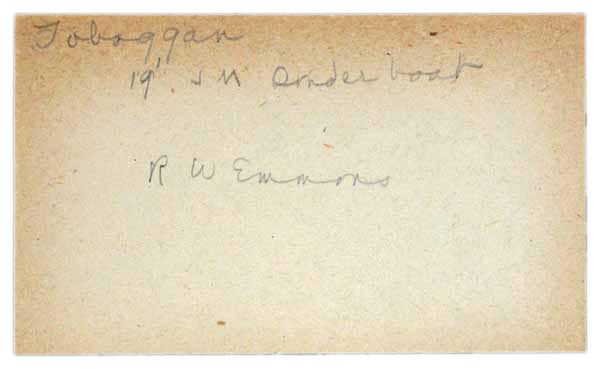 Toboggan
19' J M Sonder boat
R W Emmons